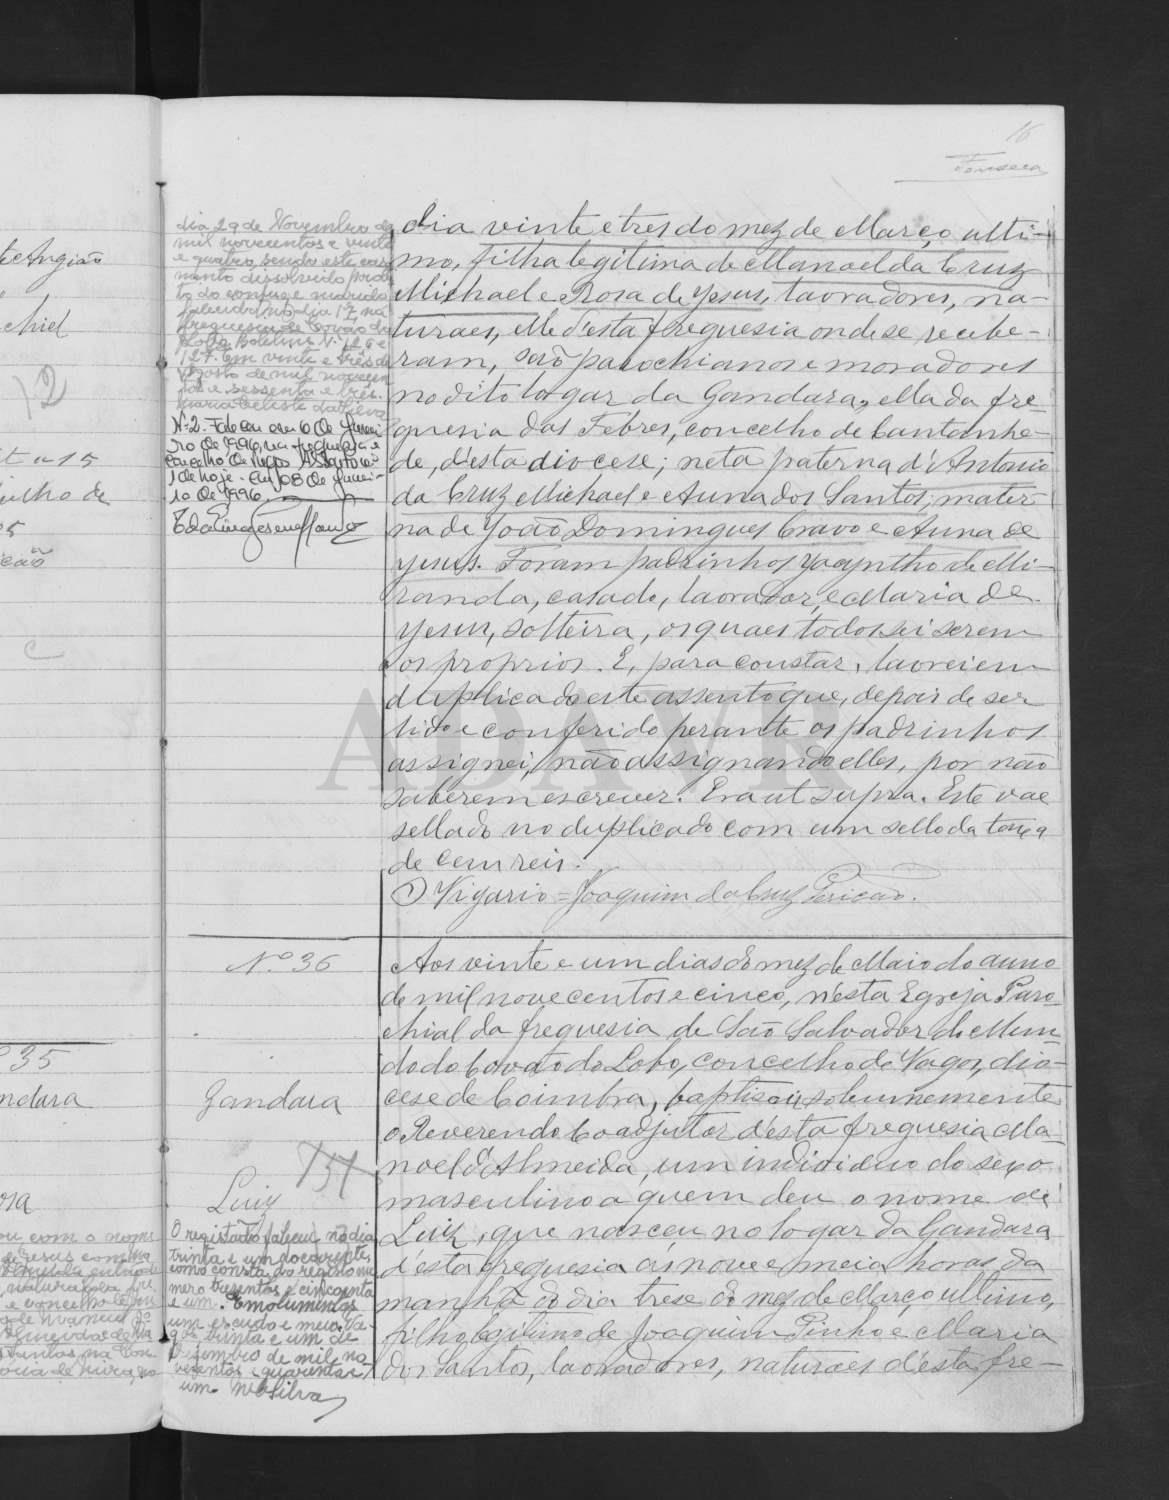 16
Fonseca
dia 29 de Novembro de
mil novecentos e vinte
e quatro, sendo este casa
mento dissolvido por obi
to do conjuge marido
falecido no dia 17 na
freguesia de Covão do
Lobo. Boletins Nº 126 e
127. Em vinte e três de
Agosto de mil novecen
tos e sessenta e três.
Maria Celeste da Silva
Nº 2. Faleceu em 6 de Janei
ro de 1996 na freguesia e
concelho de Vagos. Assento nº
1 de hoje. Em 08 de Janei-
ro de 1996.
dia vinte e tres do mez de Março ulti-
mo, filha legitima de Manoel da Cruz
Michael e Rosa de Jesus, lavradores, na-
turaes, elle d'esta freguesia onde se recebe-
ram, são parochianos e moradores
no dito logar da Gandara, ella da fre-
guesia das Febres, concelho de Cantanhe-
de, d'esta diocese; neta paterna d'Antonio
da Cruz Michael e Anna dos Santos; mater-
na de João Domingues Cravo e Anna de
Jesus. Foram padrinhos Jacyntho de Mi-
randa, casado, lavrador, e Maria de
Jesus, solteira, os quaes todos sei serem
os proprios. E, para constar, lavrei em
duplicado este assento que, depois de ser
lido e conferido perante os padrinhos
assignei, não assignando elles, por não
saberem escrever. Era ut supra. Este vae
sellado no duplicado com um sello da taxa
de cem reis.
O Vigario = Joaquim da Cruz Pericão.
Nº 36
Gandara
Luiz
O registado faleceu no dia
trinta e um do corrente,
como consta do registo nu
mero tresentos e cincoenta
e um. Emolumentos
um escudo e meio. Va-
gos, trinta e um de
Dezembro de mil no
vecentos e quarenta e
um. Silva
Aos vinte e um dias do mez de Maio do anno
de mil nove centos e cinco, n'esta Egreja Paro-
chial da freguesia de São Salvador do Mun-
do do Covão do Lobo, concelho de Vagos, dio-
cese de Coimbra, baptisou solemnemente
o Reverendo Coadjutor d'esta freguesia Ma-
noel d'Almeida, um individuo do sexo
masculino a quem deu o nome de
Luiz, que nasceu no logar da Gandara
d'esta freguesia ás nove e meia horas da
manhã do dia trese do mez de Março ultimo,
filho legitimo de Joaquim Pinho e Maria
dos Santos, lavradores, naturaes d'esta fre-
ADAVR